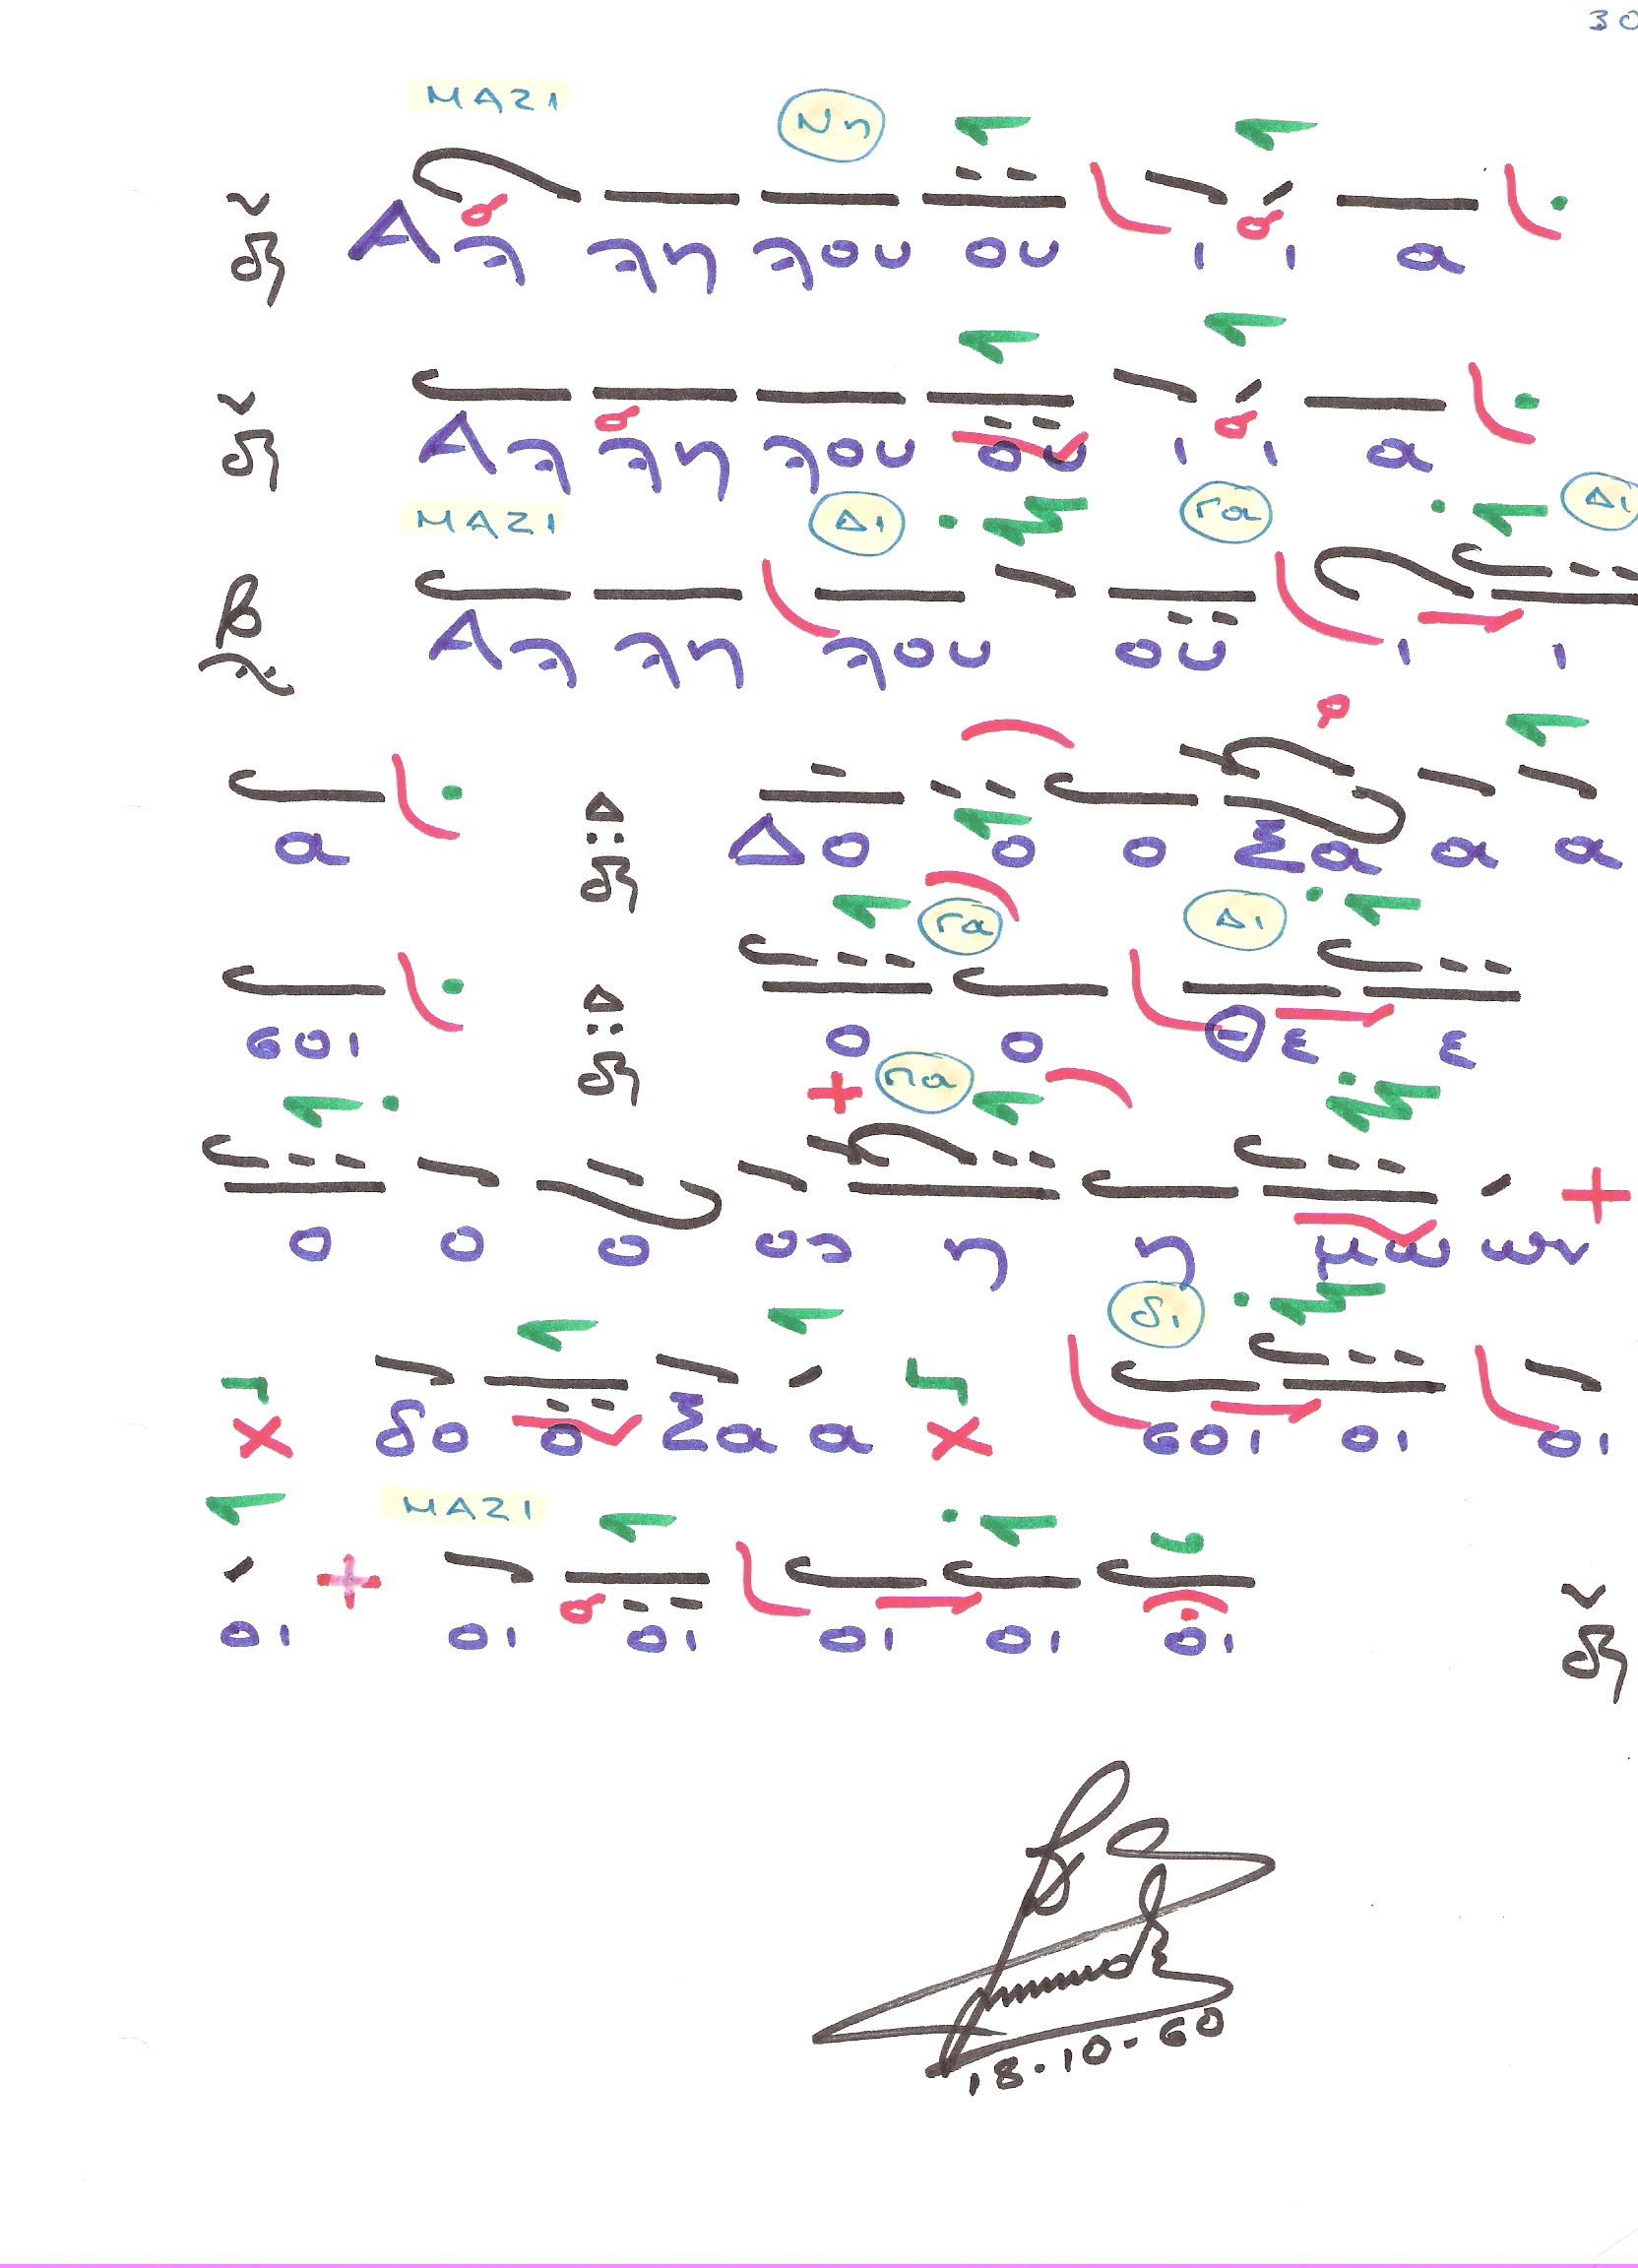 30
ΜΑΖΙ Νη
Αλ λη λου ου ι ι α
Αλ λη λου ου ι ι α
ΜΑΖΙ Δι Γα Δι
Αλ λη λου ου ι ι
α Δο ο ο Σα α α
Γα Δι
σοι ο ο Θε ε
Πα
ο ο ο ο η η με εν
δι
δο ο Σα α σοι οι οι
ΜΑΖΙ
οι οι οι οι οι οι
18-10-60